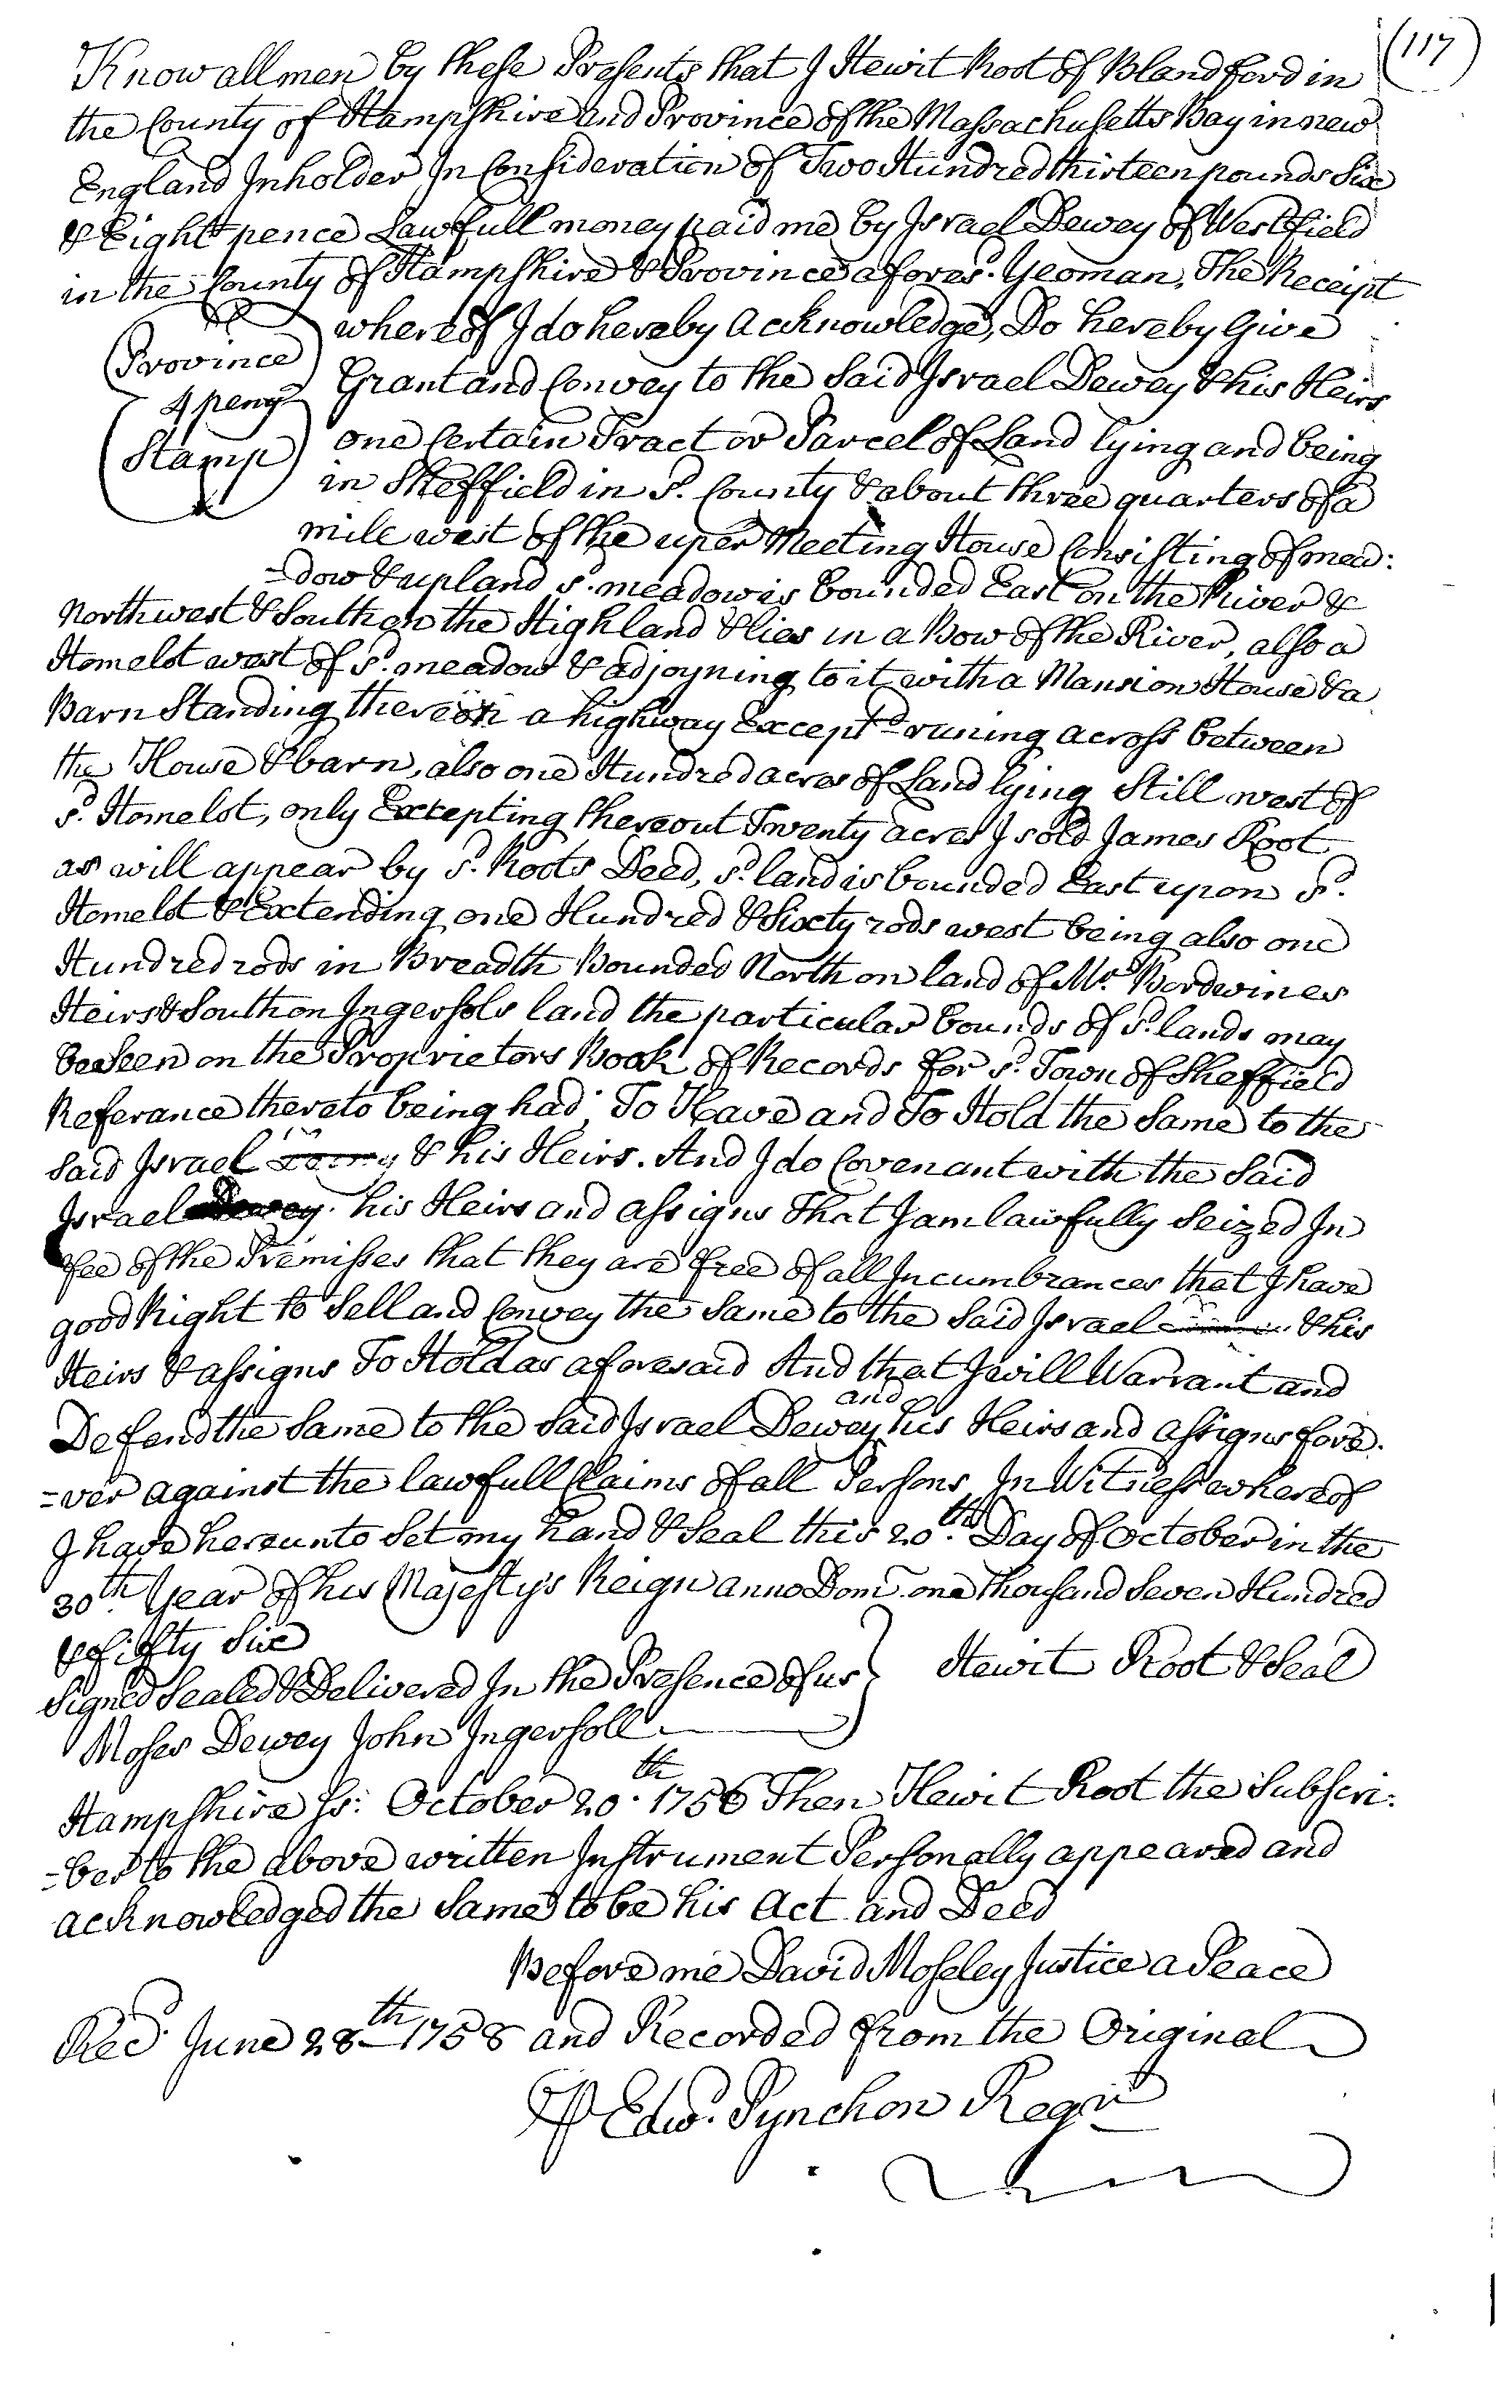 (117)
Know all men by these Presents that I Hewit Root of Blandford in
the County of Hampshire and Province of the Massachusetts Bay in new
England Inholder In Consideration of Two Hundred thirteen pounds Six
& Eight pence Lawfull money paid me by Israel Dewey of Westfield
in the County of Hampshire & Province afores.d Yeoman, The Receipt
whereof I do hereby acknowledge, Do hereby Give
Province
4 peny
Stamp
Grant and Convey to the Said Israel Dewey & his Heirs
one Certain Tract or Parcel of Land lying and being
in Sheffield in s.d County & about three quarters of a
mile west of the uper Meeting House Consisting of mea:
=dow & upland s.d meadow is bounded East on the River &
Northwest & South on the Highland & lies in a Bow of the River, also a
Homelot west of s.d meadow & adjoyning to it with a Mansion House & a
Barn Standing thereon a highway Except.d runing across between
the House & barn, also one Hundred acres of Land lying Still west of
s.d Homelot, only Excepting thereout Twenty acres I sold James Root
as will appear by s.d Roots Deed, s.d land is bounded East upon s.d
Homelot & Extending one Hundred & Sixty rods west being also one
Hundred rods in Breadth Bounded North on land of Mr. Bordwines
Heirs & South on Ingersols land the particular bounds of s.d lands may
be Seen on the Proprietors Book of Records for s.d Town of Sheffield
Referance thereto being had; To Have and To Hold the Same to the
Said Israel & his Heirs. And I do Covenant with the Said
Israel Dewey his Heirs and assigns That I am lawfully Seized In
fee of the Premisses that they are free of all Incumbrances that I have
good Right to Sell and Convey the Same to the Said Israel & his
Heirs & assigns To Hold as aforesaid And that I will Warrant and
Defend the Same to the Said Israel Dewey and his Heirs and assigns fore:
=ver against the lawfull Claims of all Persons In Witness whereof
I have hereunto Set my hand & Seal this 20.th Day of October in the
30th. Year of his Majesty's Reign anno Dom. one thousand Seven Hundred
& fifty Six
Signed Sealed & Delivered In the Presence of us } Hewit Root & Seal
Moses Dewey John Ingersoll
Hampshire Ss: October 20.th 1756 Then Hewit Root the Subscri:
=ber to the above written Instrument Personally appeared and
acknowledged the Same to be his Act and Deed
Before me David Moseley Justice a Peace
Rec.d June 28th 1758 and Recorded from the Original
P Edw.d Pynchon Reg.r